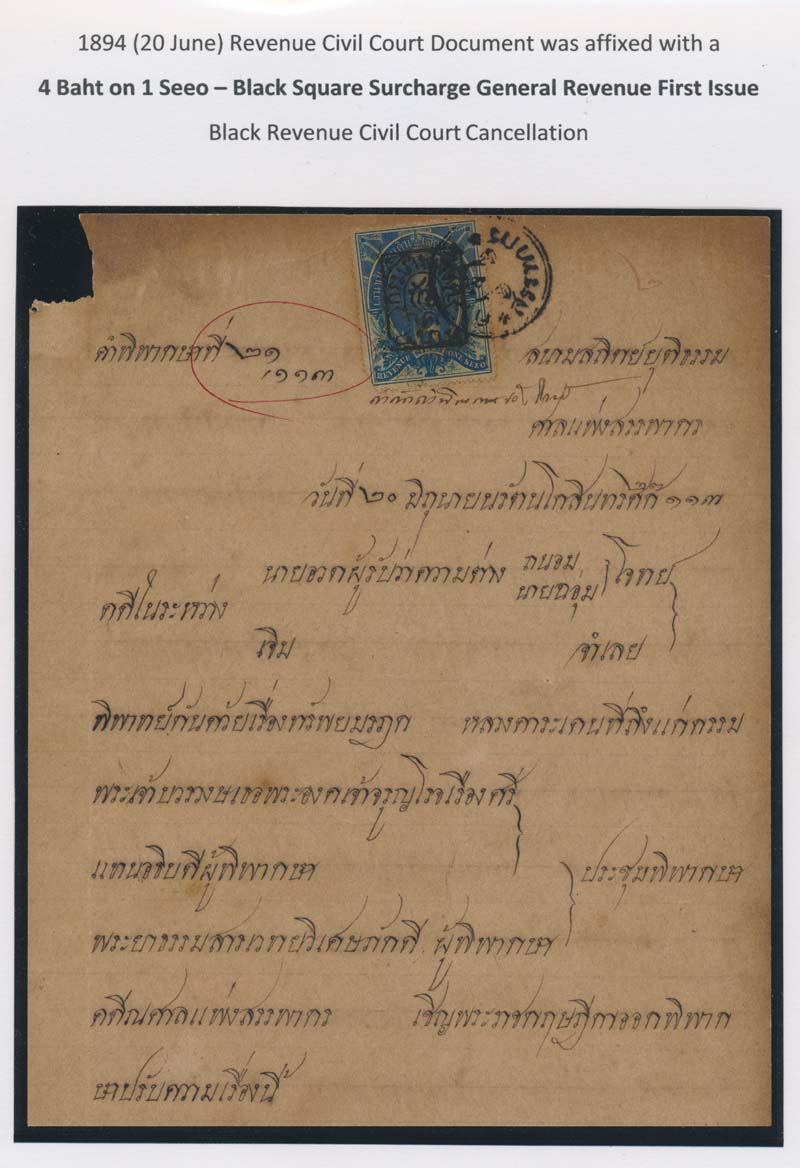 1894 (20 June) Revenue Civil Court Document was affixed with a
4 Baht on 1 Seeo – Black Square Surcharge General Revenue First Issue
Black Revenue Civil Court Cancellation
REVENUE ONE SEEO
คำพิพากษาที่ ๒๑
๑๑๓
สนามสถิตย์ยุติธรรม
ศาลแพ่งสรรพากร
วันที่ ๒๐ มิถุนายน รัตนโกสินทร ๑๑๓
ผู้รับว่าความต่าง ถนอม โจทย
คดีในระหว่าง
เจิม จำเลย
พิพาทย์กันด้วยเรื่องทรัพยมรฎก
พระเจ้าบวรวงษเธอพระองคเจ้าจรูญโรจเรืองศรี
แทนอธิบดีผู้พิพากษา ประชุมพิพากษา
พระยาธรรมสารเวทยวิเศษภักดี ผู้พิพากษา
คดีณศาลแพ่งสรรพากร เชิญพระราชกฤษฎีกาออกพิพาก
ษาปรับความเรื่องนี้